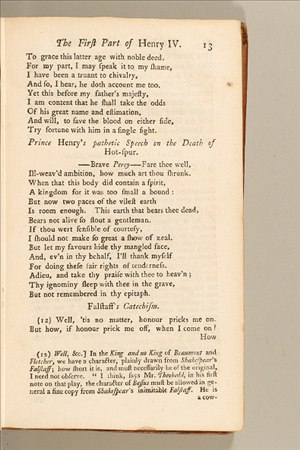 The Firſt Part of Henry IV. 13
To grace this latter age with noble deed.
For my part, I may ſpeak it to my ſhame,
I have been a truant to chivalry,
And ſo, I hear, he doth account me too.
Yet this before my father's majeſty,
I am content that he ſhall take the odds
Of his great name and eſtimation,
And will, to ſave the blood on either ſide,
Try fortune with him in a ſingle fight.
Prince Henry's pathetic Speech on the Death of
Hot-ſpur.
—Brave Percy—Fare thee well,
Ill-weav'd ambition, how much art thou ſhrunk.
When that this body did contain a ſpirit,
A kingdom for it was too ſmall a bound:
But now two paces of the vileſt earth
Is room enough. This earth that bears thee dead,
Bears not alive ſo ſtout a gentleman.
If thou wert ſenſible of courteſy,
I ſhould not make ſo great a ſhow of zeal.
But let my favours hide thy mangled face,
And, ev'n in thy behalf, I'll thank myſelf
For doing theſe fair rights of tenderneſs.
Adieu, and take thy praiſe with thee to heav'n;
Thy ignominy ſleep with thee in the grave,
But not remembered in thy epitaph.
Falſtaff's Catechiſm.
(12) Well, 'tis no matter, honour pricks me on.
But how, if honour prick me off, when I come on?
How
(12) Well, &c.] In the King and no King of Beaumont and
Fletcher, we have a character, plainly drawn from Shakeſpear's
Falſtaff; how ſhort it is, and muſt neceſſarily be of the original,
I need not obſerve. “ I think, ſays Mr. Theobald, in his firſt
note on that play, the character of Beſſus muſt be allowed in ge-
neral a fine copy from Shakeſpear's inimitable Falſtaff. He is
a cow-